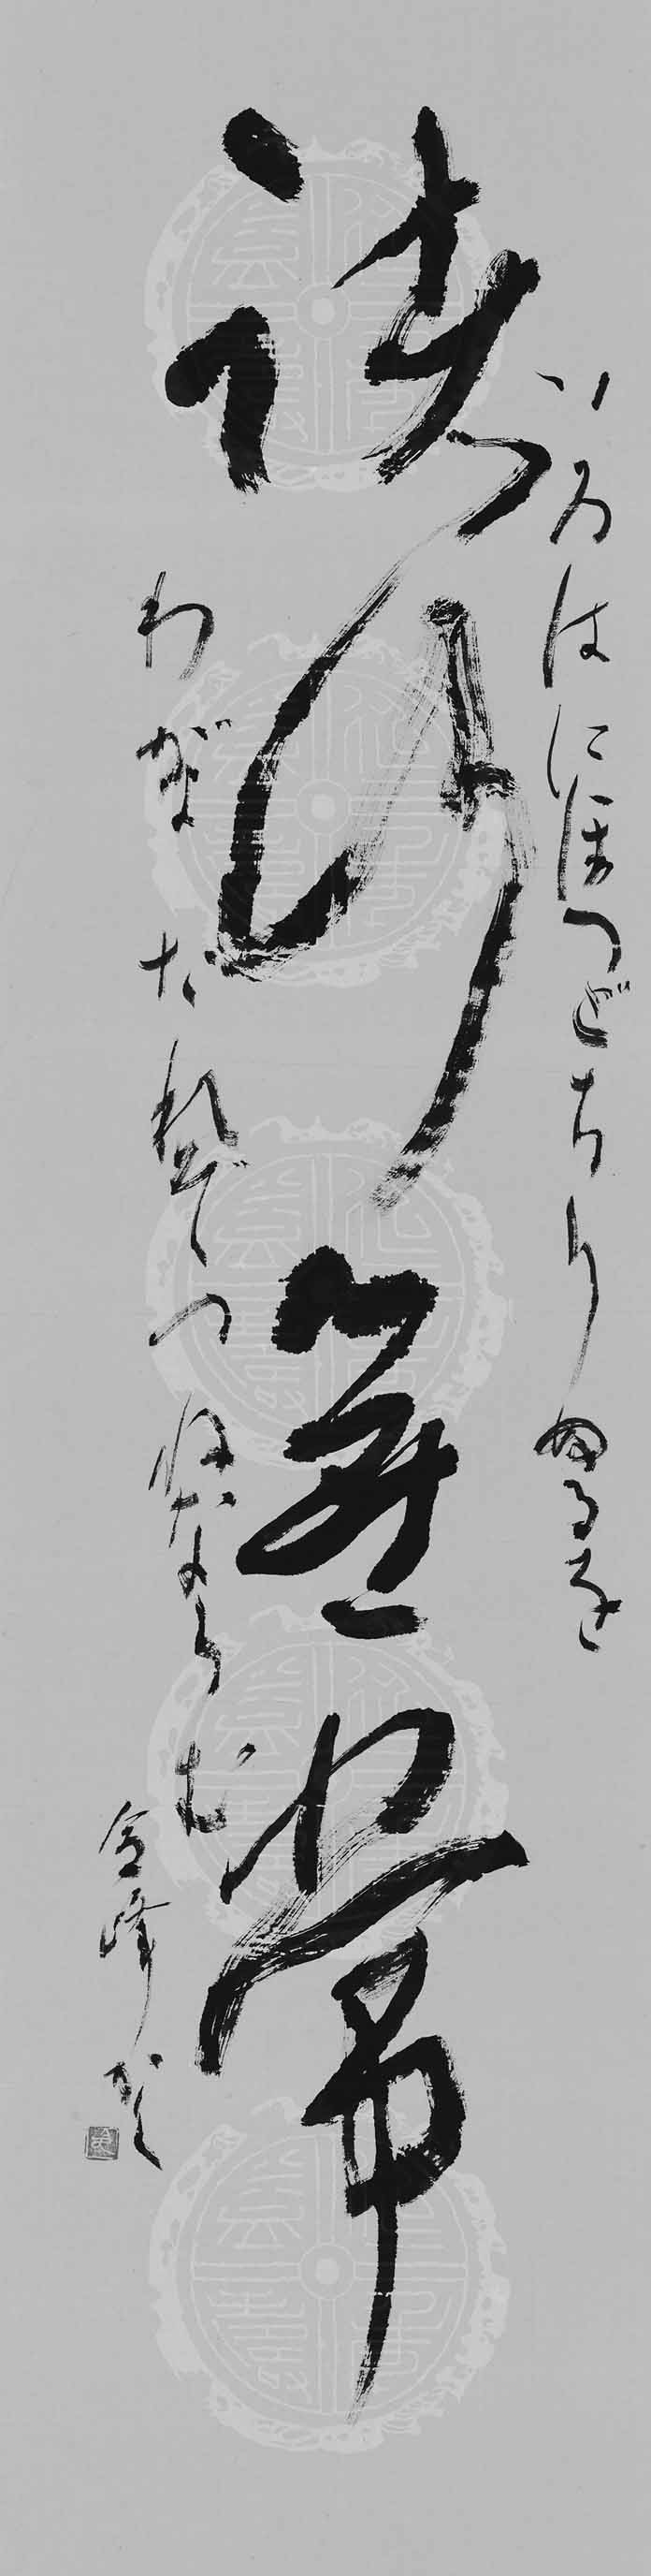 いろはにほへどちりぬるを
諸行無常
わがよたれぞつねならむ
金峰かく